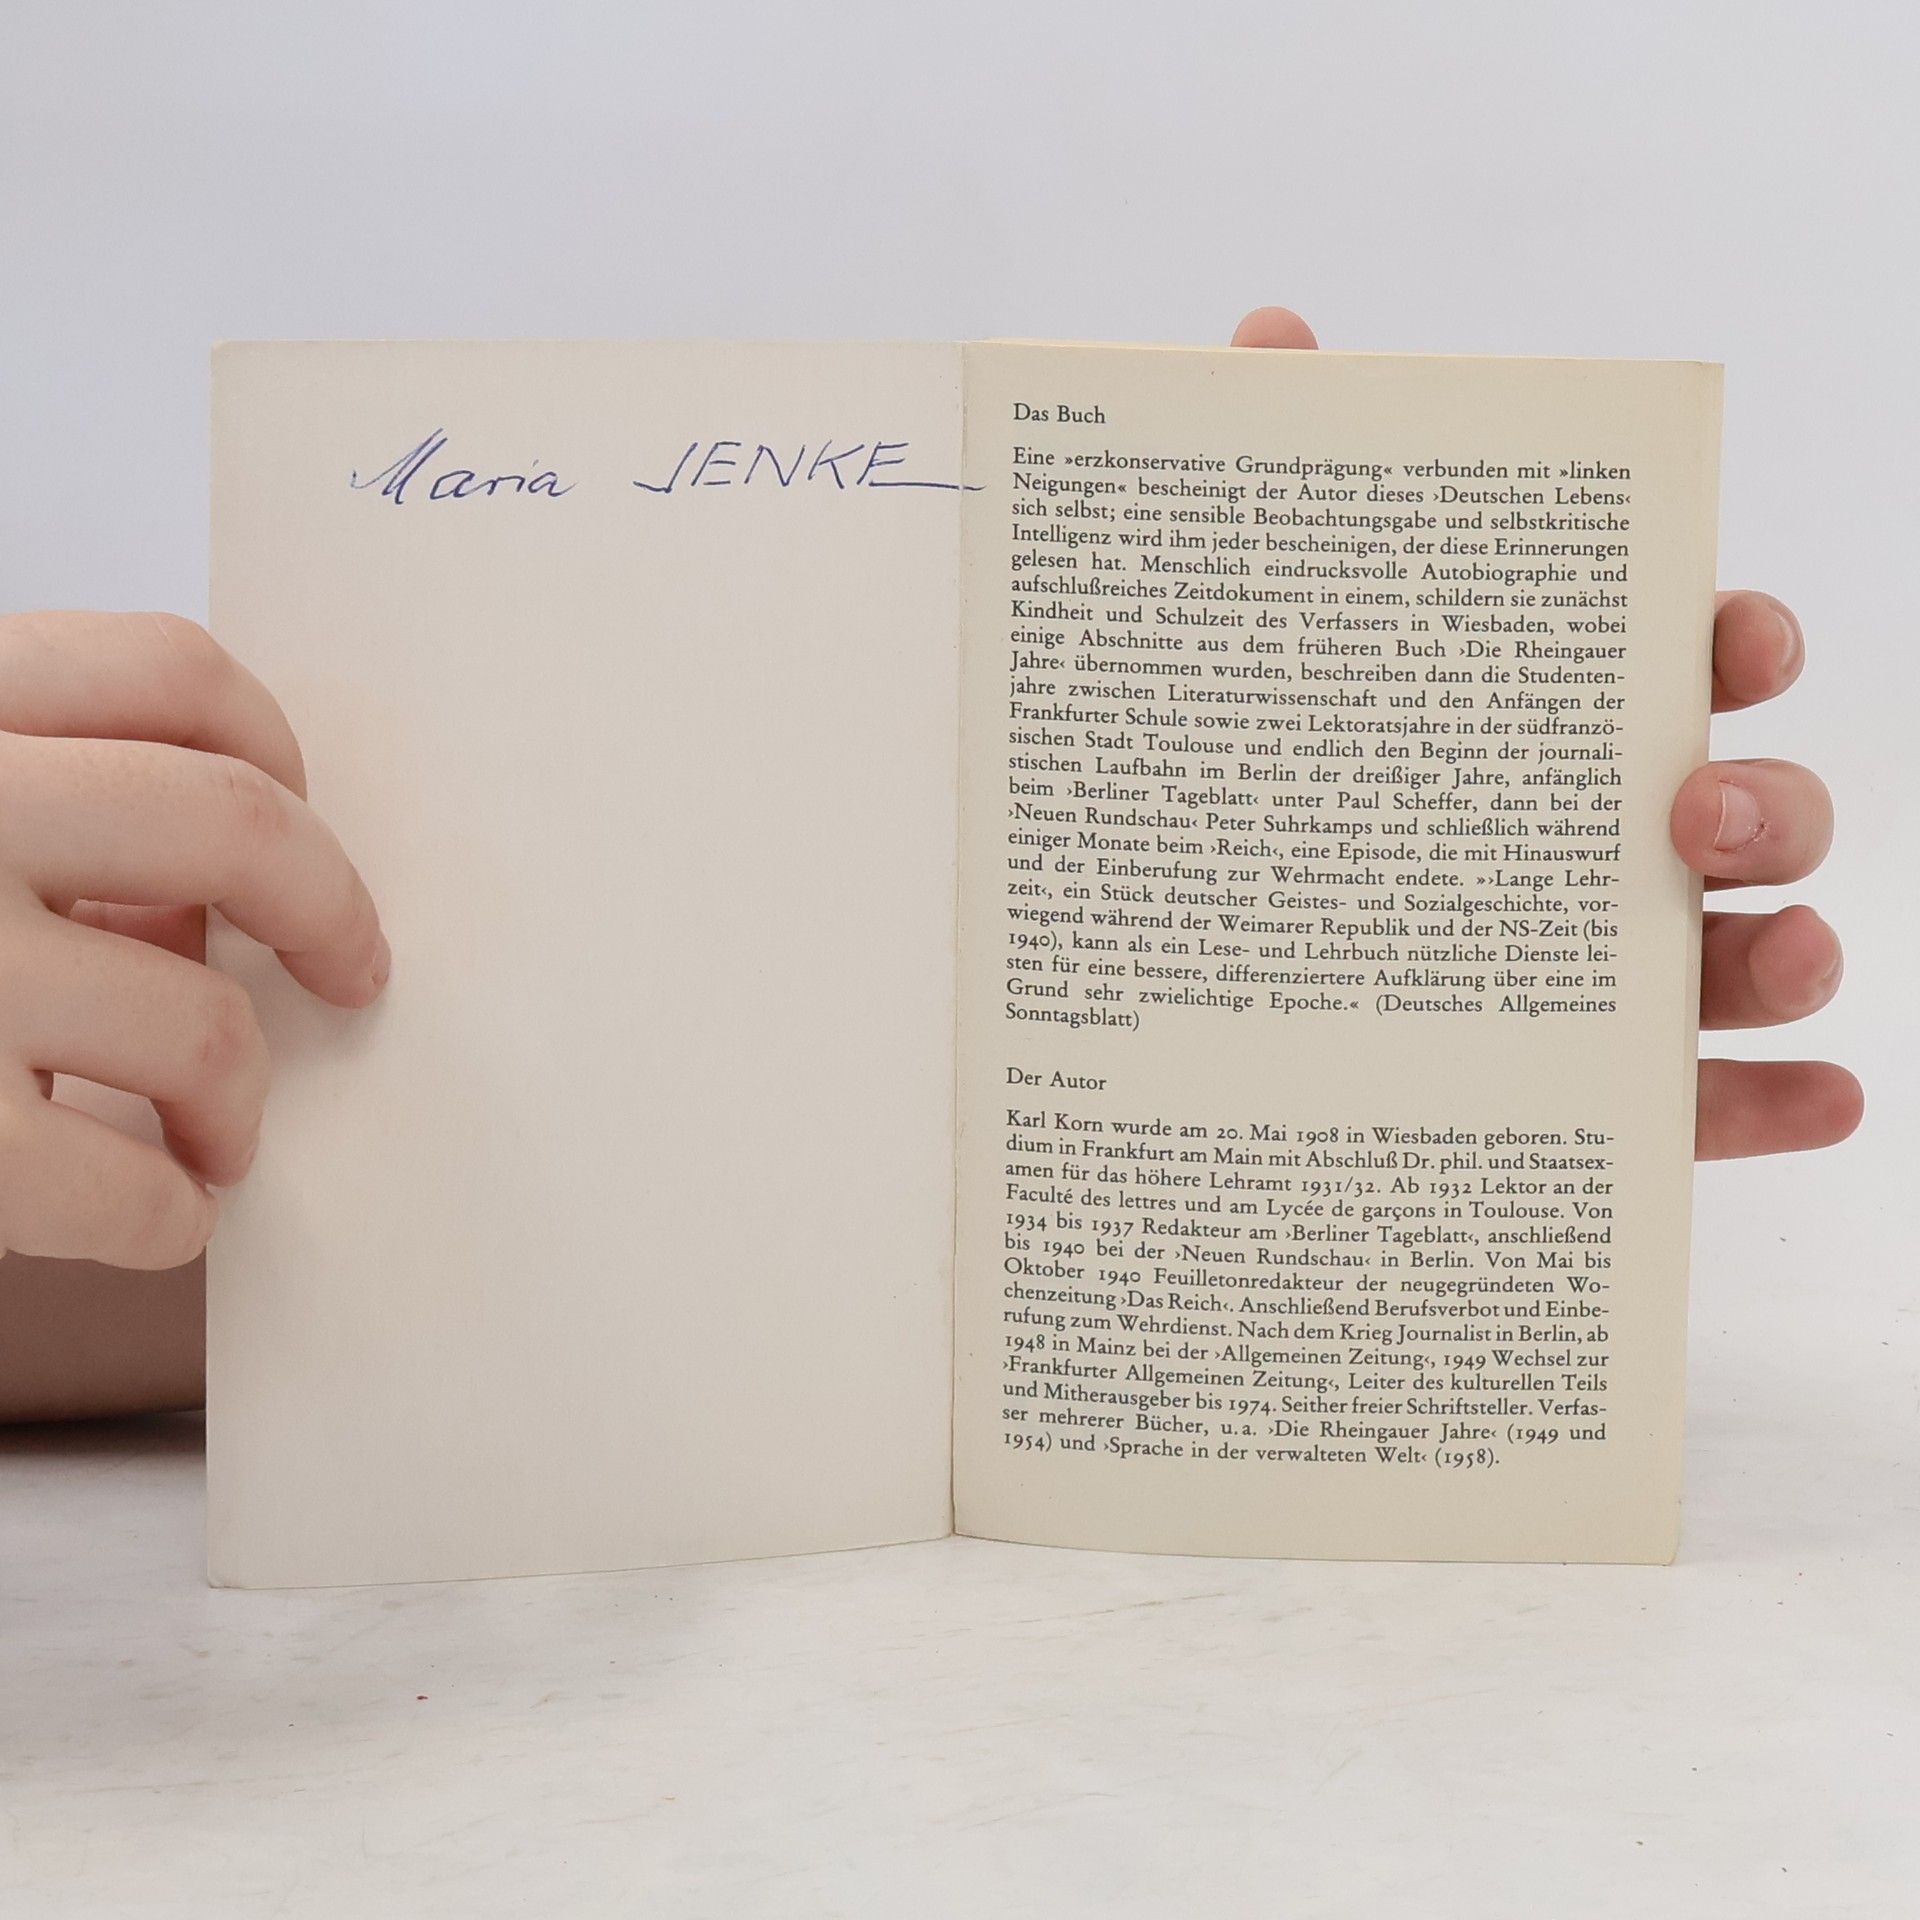 Maria JENKE
Das Buch
Eine »erzkonservative Grundprägung« verbunden mit »linken
Neigungen« bescheinigt der Autor dieses ›Deutschen Lebens‹
sich selbst; eine sensible Beobachtungsgabe und selbstkritische
Intelligenz wird ihm jeder bescheinigen, der diese Erinnerungen
gelesen hat. Menschlich eindrucksvolle Autobiographie und
aufschlußreiches Zeitdokument in einem, schildern sie zunächst
Kindheit und Schulzeit des Verfassers in Wiesbaden, wobei
einige Abschnitte aus dem früheren Buch ›Die Rheingauer
Jahre‹ übernommen wurden, beschreiben dann die Studenten-
jahre zwischen Literaturwissenschaft und den Anfängen der
Frankfurter Schule sowie zwei Lektoratsjahre in der südfranzö-
sischen Stadt Toulouse und endlich den Beginn der journali-
stischen Laufbahn im Berlin der dreißiger Jahre, anfänglich
beim ›Berliner Tageblatt‹ unter Paul Scheffer, dann bei der
›Neuen Rundschau‹ Peter Suhrkamps und schließlich während
einiger Monate beim ›Reich‹, eine Episode, die mit Hinauswurf
und der Einberufung zur Wehrmacht endete. »›Lange Lehr-
zeit‹, ein Stück deutscher Geistes- und Sozialgeschichte, vor-
wiegend während der Weimarer Republik und der NS-Zeit (bis
1940), kann als ein Lese- und Lehrbuch nützliche Dienste lei-
sten für eine bessere, differenziertere Aufklärung über eine im
Grund sehr zwielichtige Epoche.« (Deutsches Allgemeines
Sonntagsblatt)
Der Autor
Karl Korn wurde am 20. Mai 1908 in Wiesbaden geboren. Stu-
dium in Frankfurt am Main mit Abschluß Dr. phil. und Staatsex-
amen für das höhere Lehramt 1931/32. Ab 1932 Lektor an der
Faculté des lettres und am Lycée de garçons in Toulouse. Von
1934 bis 1937 Redakteur am ›Berliner Tageblatt‹, anschließend
bis 1940 bei der ›Neuen Rundschau‹ in Berlin. Von Mai bis
Oktober 1940 Feuilletonredakteur der neugegründeten Wo-
chenzeitung ›Das Reich‹. Anschließend Berufsverbot und Einbe-
rufung zum Wehrdienst. Nach dem Krieg Journalist in Berlin, ab
1948 in Mainz bei der ›Allgemeinen Zeitung‹, 1949 Wechsel zur
›Frankfurter Allgemeinen Zeitung‹, Leiter des kulturellen Teils
und Mitherausgeber bis 1974. Seither freier Schriftsteller. Verfas-
ser mehrerer Bücher, u. a. ›Die Rheingauer Jahre‹ (1949 und
1954) und ›Sprache in der verwalteten Welt‹ (1958).